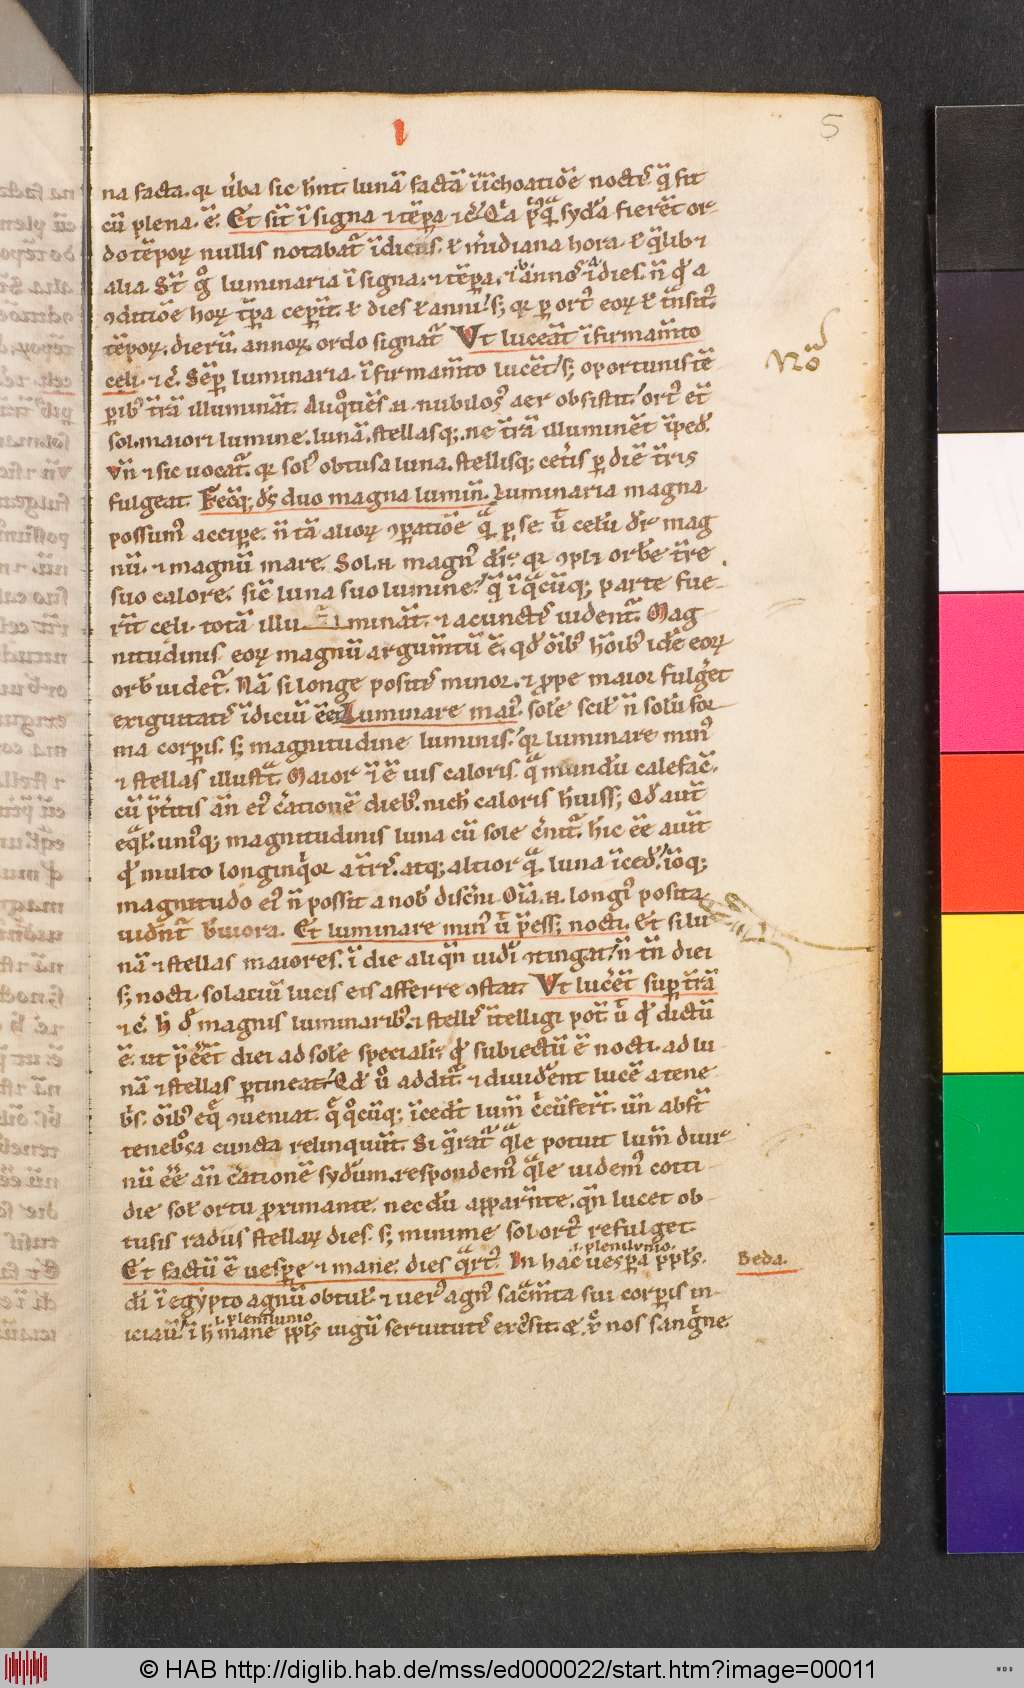 I
5
na facta. qr ūba sic hn̄t. lunā factā ī īchoatiōe noctꝭ q̄ fit
cū plena. ē. Et sīt ī signa ⁊ tēpa ⁊ c̄.
do tēpoꝝ nullis notabat̄ īdiciis. ł m̄idiana hora. ł q̄lib⁊
alia. Sīt g° luminaria ī signa. ⁊ tēpa. ⁊ annos ī dies. n̄ qd̄ a
ꝯditiōe hoꝝ tp̄a cep̄īt. ł dies ł anni. s; qr p ortꝰ eoꝝ ł t̄nsitꝰ.
tēpoꝝ. dierū. annoꝝ. ordo signat̄ Vt luceāt ī firmam̄to
celi. ⁊ c̄. Sēp luminaria. ī firmam̄to lucēt. s; oportunis tē
pibꝰ t̄rā illumināt.
sol. maiori lumine. lunā. stellasq;. ne t̄rā illuminēt īped̄.
Vn̄ ⁊ sic uocat̄. qr sol̓ obtusa luna. stellisq; cet̄is p diē t̄ris
fulgeat. Fecitq; ds̄ duo magna lumin̄. Luminaria magna
possumꝰ accipe. n̄ tā alioꝝ ꝯpatiōe q̄ p se. ū celū dr̄ mag
nū. ⁊ magnū mare. Sol. n. magnꝰ dr̄. qr ꝯplꝫ orbē t̄re
suo calore. sic̄ luna suo lumine. q̄ ī q̄cūq; parte fue
rīt celi. totā illu minat. ⁊ a cunctꝭ uident̄. Mag
nitudinis eoꝝ magnū argum̄tū ē. qd̄ ōibꝰ hōibꝰ idē eoꝝ
orbꝭ uidet̄. Nā si longe positꝭ minor. ⁊ prope maior fulḡet
exiguitatꝭ īdiciū ēēt. Luminare maiꝰ. solē scil̓ n̄ solū for
ma corpis. s; magnitudine luminis. qr luminare minꝰ
⁊ stellas illust̄t. Maior ī ē uis caloris. q̄ mundū calefac̄.
cū p̄titis an̄ eiꝰ c̄ationē diebꝰ. nich̓ caloris h̄uiss;. Qd̄ aut̄
eq̄l̓. uniꝰq; magnitudinis luna cū sole c̄nit̄. hic ēē aut̄
qd̄ multo longinq̓or a t̄ris. atq; altior q̄ luna īced̄. īōq;
magnitudo eiꝰ n̄ possit a nob̓ disc̄ni. Oīa. n. longiꝰ posita
uidn̄t̄ b̄uiora. Et luminare minꝰ ū p̄ess; nocti. Et si lu
nā ⁊ stellas maiores. ī die aliqn̄ uid̄i ꝯtingat. n̄ tn̄ diei
s; nocti. solaciū lucis eis afferre ꝯstat. Vt lucēt sup t̄rā
⁊ c̄. h̄ d̄ magnis luminaribꝰ. ⁊ stell̓ ītelligi pot̄. ū qd̄ dictū
ē. ut p̄ēēt diei ad solē speciali. qd̄ subiectū ē nocti. ad lu
nā ⁊ stellas ptineat. Qd̄ ū addit̄. ⁊ diuid̄ent lucē a tene
b̄s. ōibꝰ eq̄ ꝯueniat. q̄ q°cūq; īcedt̄ lum̄ c̄cūfer̄t. un̄ abst̄
tenebrosa cuncta relinquūt. Si q̄rat̄ q̄le potuit lum̄ diur
nū ēē an̄ c̄ationē syd̄um. respondemꝰ q̄le uidemꝰ cotti
die sol̓ ortu proximante. nec dū apparn̄te. qn̄ lucet ob
tusis radiis stellaꝝ dies. s; minime sol ortꝰ refulget.
i. plenilunio
Et factū ē uespe ⁊ mane. dies q̄rtꝰ. In hac uespa ppl̓s. Beda.
di ī egypto agnū obtul̓. ⁊ uerꝰ agnꝰ sac̄m̄ta sui corpis in
i. plenilunio
iciau̓. ī h̓ mane ppl̓s iugū seruitutꝭ
Nō
© HAB http://diglib.hab.de/mss/ed000022/start.htm?image=00011